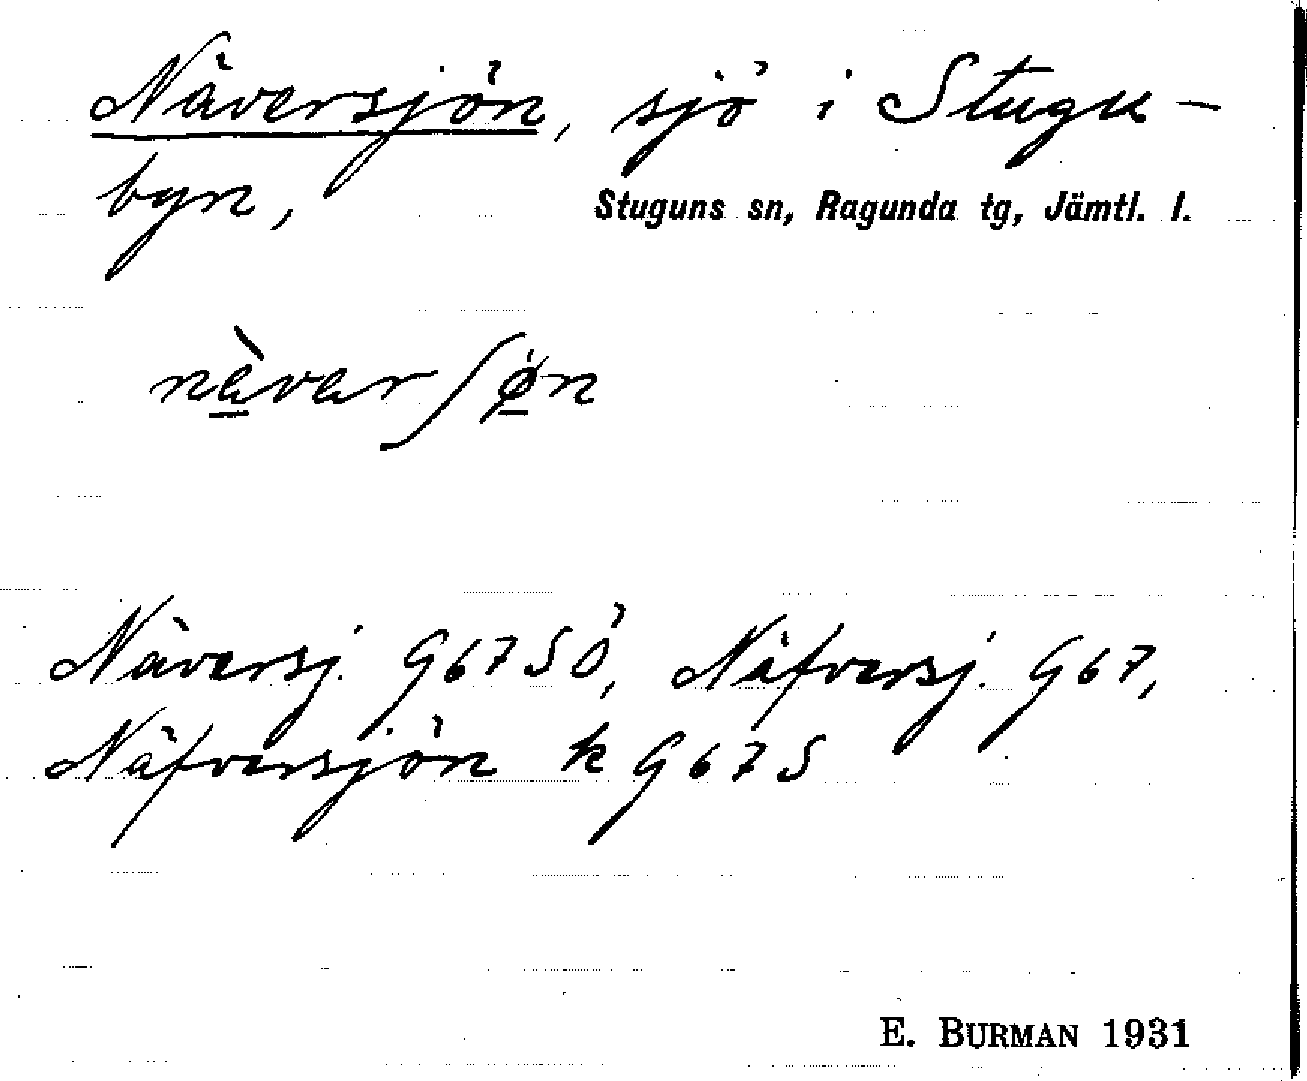 Näversjön, sjö i Stugu-
byn, Stuguns sn, Ragunda tg, Jämtl. l.
nèvarʃøn
Näversj. G67SÖ, Näfversj. G67,
Näfversjön k G67S
E. BURMAN 1931